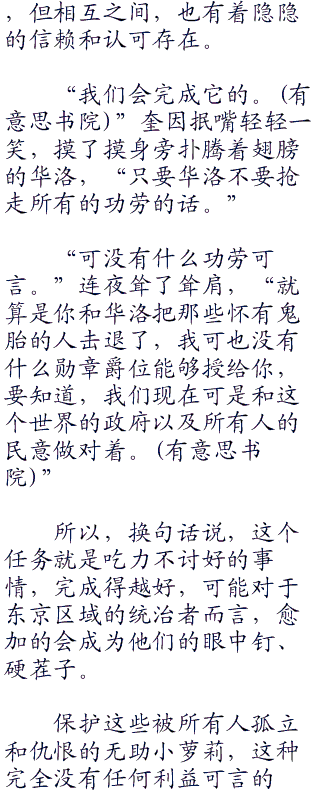 ，但相互之间，也有着隐隐
的信赖和认可存在。
“我们会完成它的。(有
意思书院)”奎因抿嘴轻轻一
笑，摸了摸身旁扑腾着翅膀
的华洛，“只要华洛不要抢
走所有的功劳的话。”
“可没有什么功劳可
言。”连夜耸了耸肩，“就
算是你和华洛把那些怀有鬼
胎的人击退了，我可也没有
什么勋章爵位能够授给你，
要知道，我们现在可是和这
个世界的政府以及所有人的
民意做对着。(有意思书
院)”
所以，换句话说，这个
任务就是吃力不讨好的事
情，完成得越好，可能对于
东京区域的统治者而言，愈
加的会成为他们的眼中钉、
硬茬子。
保护这些被所有人孤立
和仇恨的无助小萝莉，这种
完全没有任何利益可言的